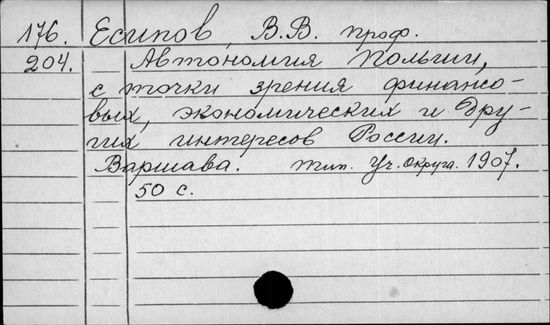 176. Есипов, В.В. проф.
204. Автономия Польши,
с точки зрения финансо-
вых, экономических и дру-
гих интересов России.
Варшава. тип. Уч. Округа. 1907.
50 с.